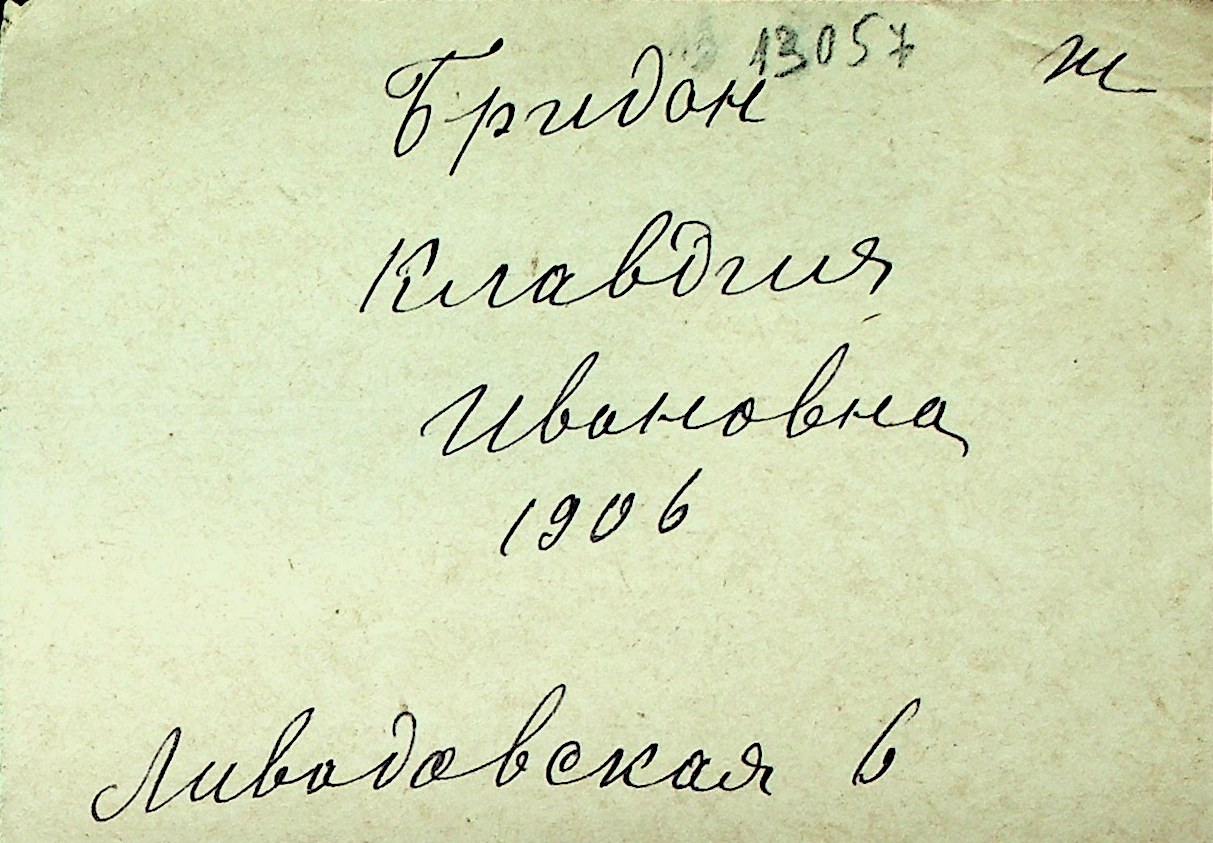 13057 ж
Бридон
Клавдия
Ивановна
1906
Ливадовская 6